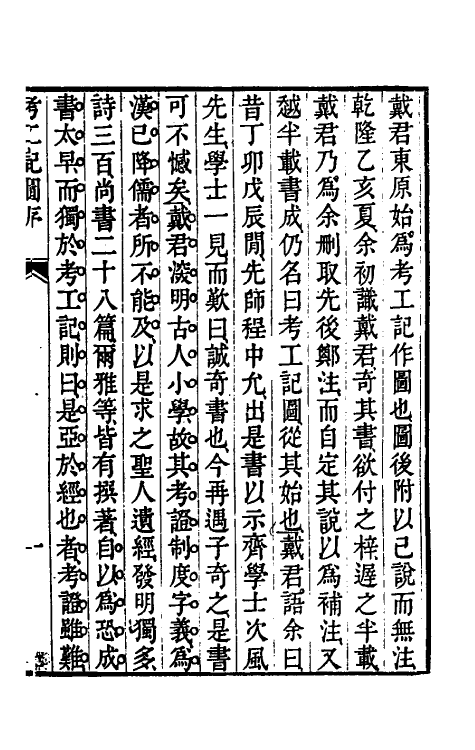 戴君東原始爲考工記作圖也圖後附以己說而無注
乾隆乙亥夏余初識戴君奇其書欲付之梓遲之半載
戴君乃爲余刪取先後鄭注而自定其說以爲補注又
越半載書成仍名曰考工記圖從其始也戴君語余曰
昔丁卯戊辰閒先師程中允出是書以示齊學士次風
先生學士一見而歎曰誠奇書也今再遇子奇之是書
可不憾矣戴君深明古人小學故其考證制度字義爲
漢已降儒者所不能及以是求之聖人遺經發明獨多
詩三百尚書二十八篇爾雅等皆有撰著自以爲恐成
書太早而獨於考工記則曰是亞於經也者考證雖難
考工記圖序
一